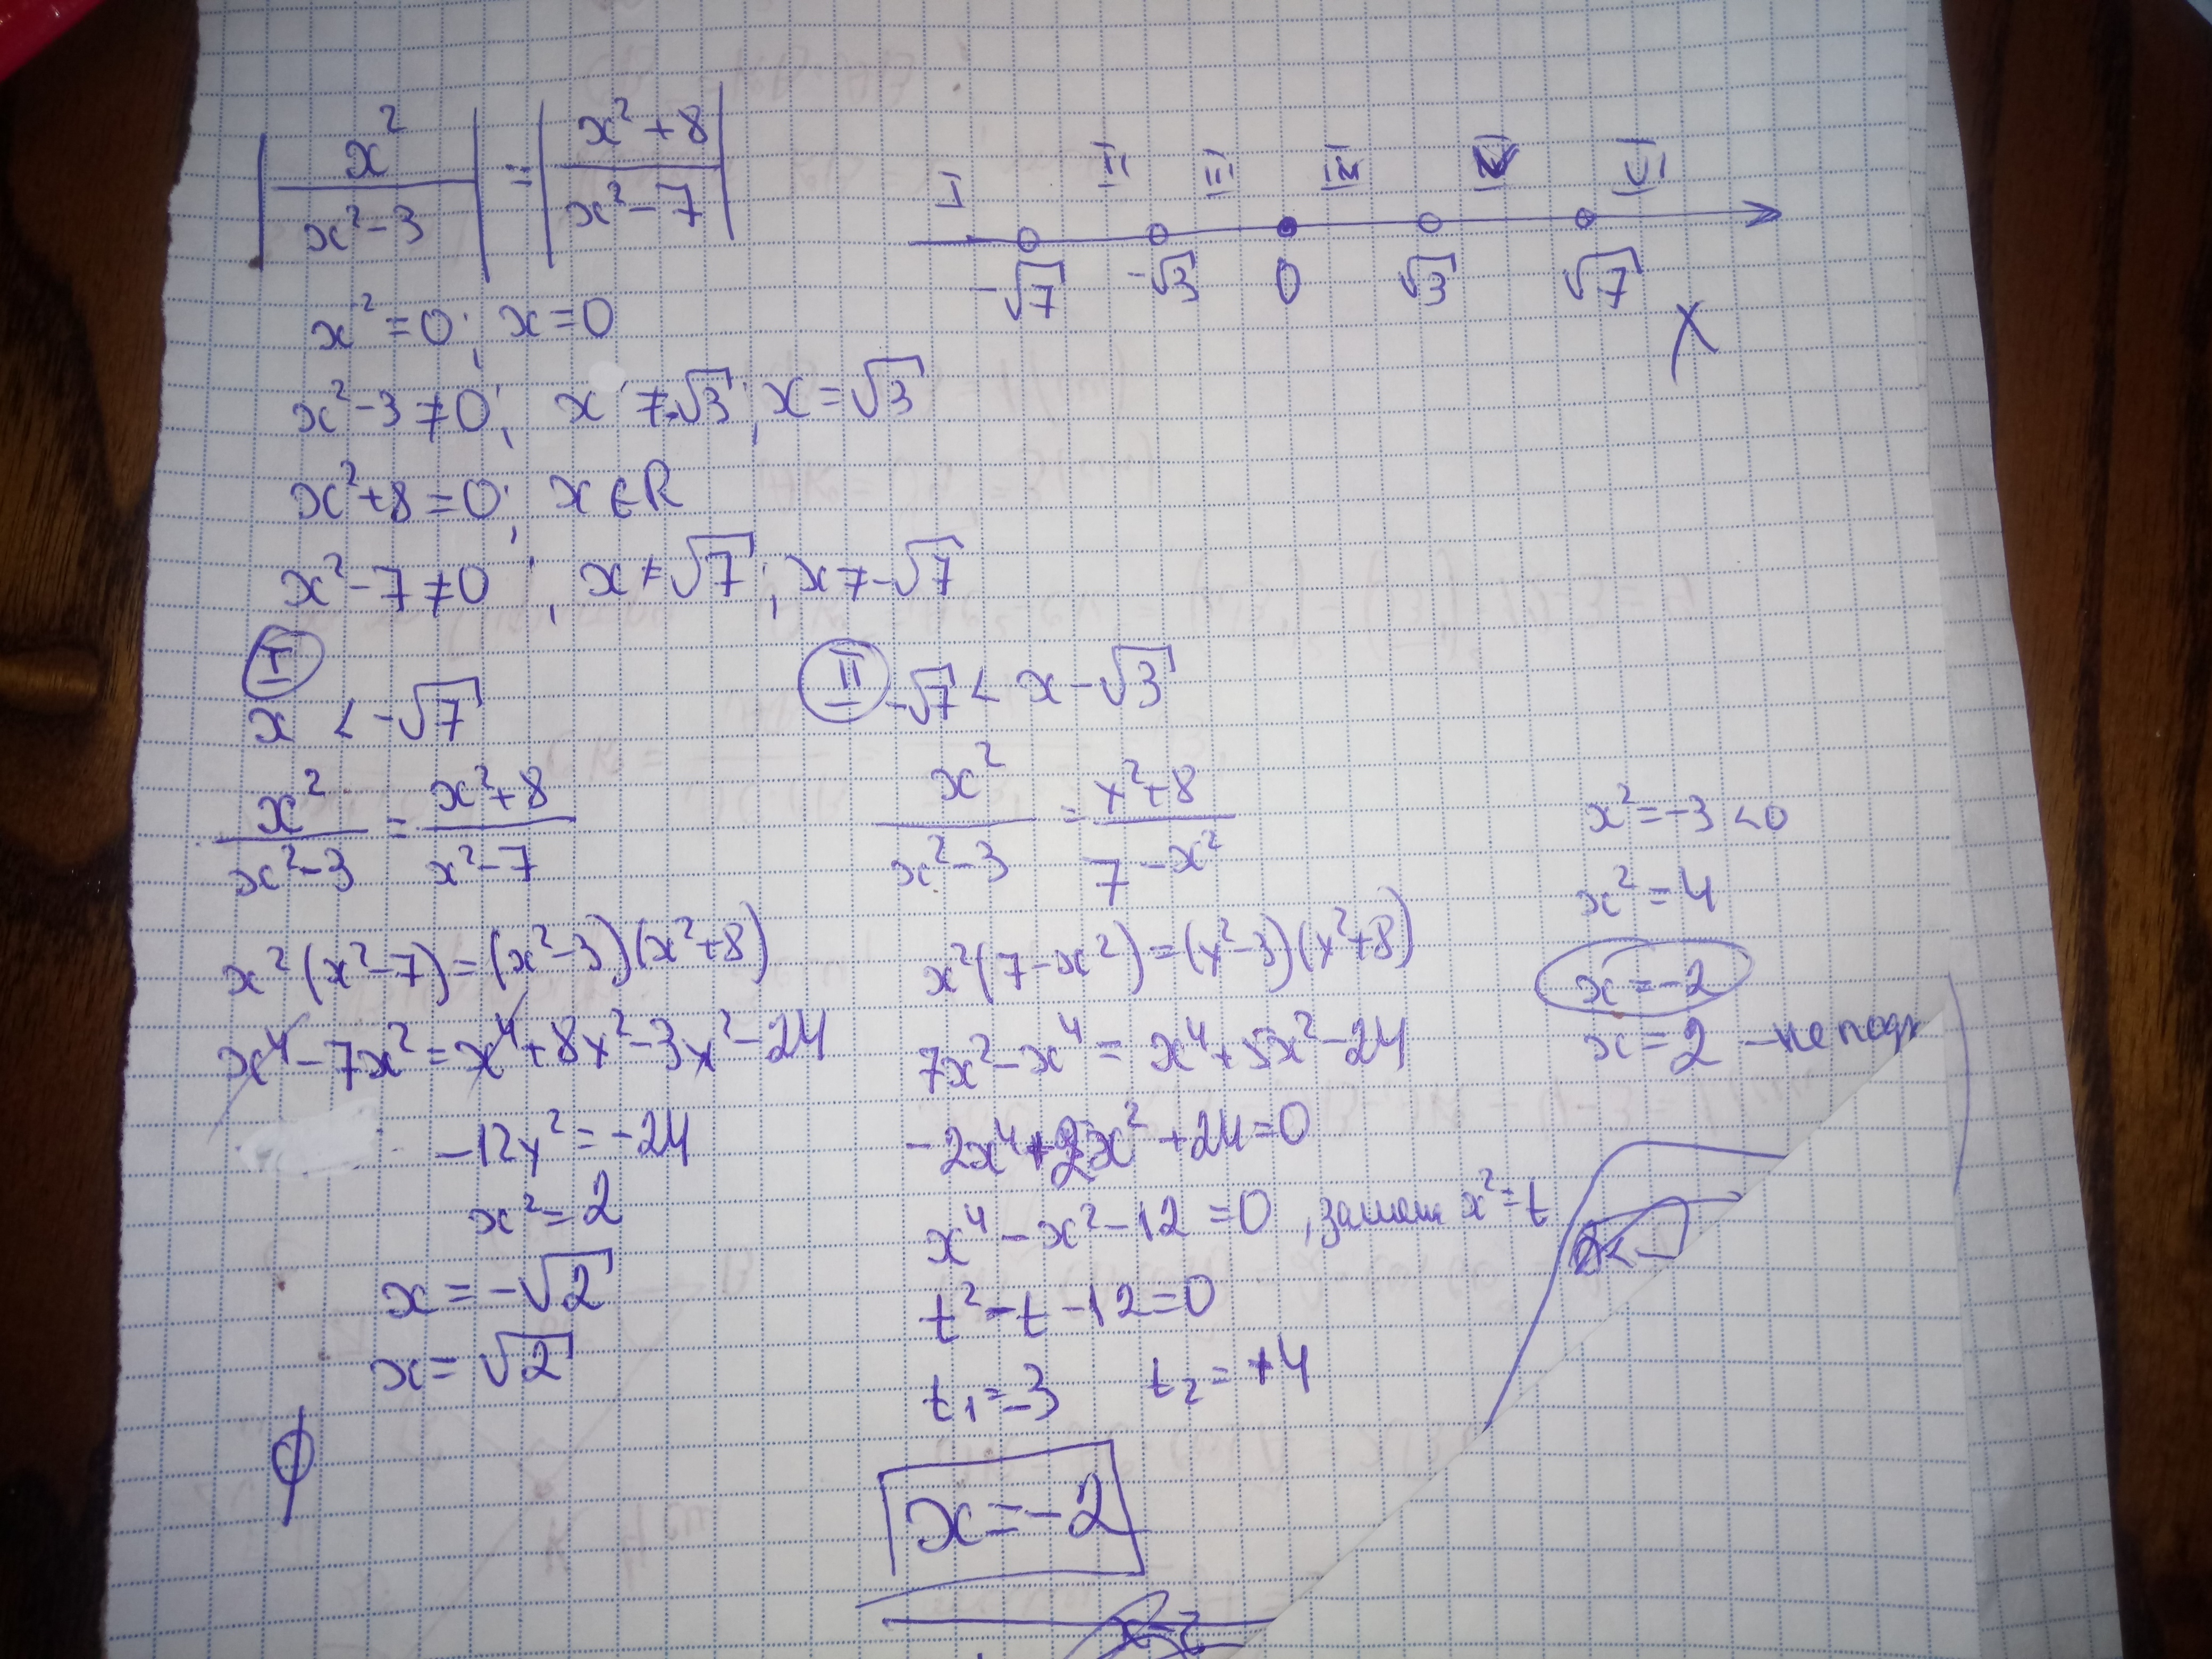 |x²/(x²-3)| = |(x²+8)/(x²-7)|
x²=0; x=0
x²-3≠0; x≠-√3; x=√3
x²+8=0; x∈R
x²-7≠0; x≠√7; x≠-√7
I II III IV V VI
-√7 -√3 0 √3 √7
X
I
x < -√7
x²/(x²-3) = (x²+8)/(x²-7)
x²(x²-7)=(x²-3)(x²+8)
x⁴-7x²=x⁴+8x²-3x²-24
-12x²=-24
x²=2
x=-√2
x=√2
∅
II -√7 < x -√3
x²/(x²-3) = (x²+8)/(7-x²)
x²(7-x²)=(x²-3)(x²+8)
7x²-x⁴=x⁴+5x²-24
-2x⁴+2x²+24=0
x⁴-x²-12=0, замена x²=t
t²-t-12=0
t₁=-3 t₂=+4
x=-2
x²=-3<0
x²=4
x=-2
x=2 - не подх